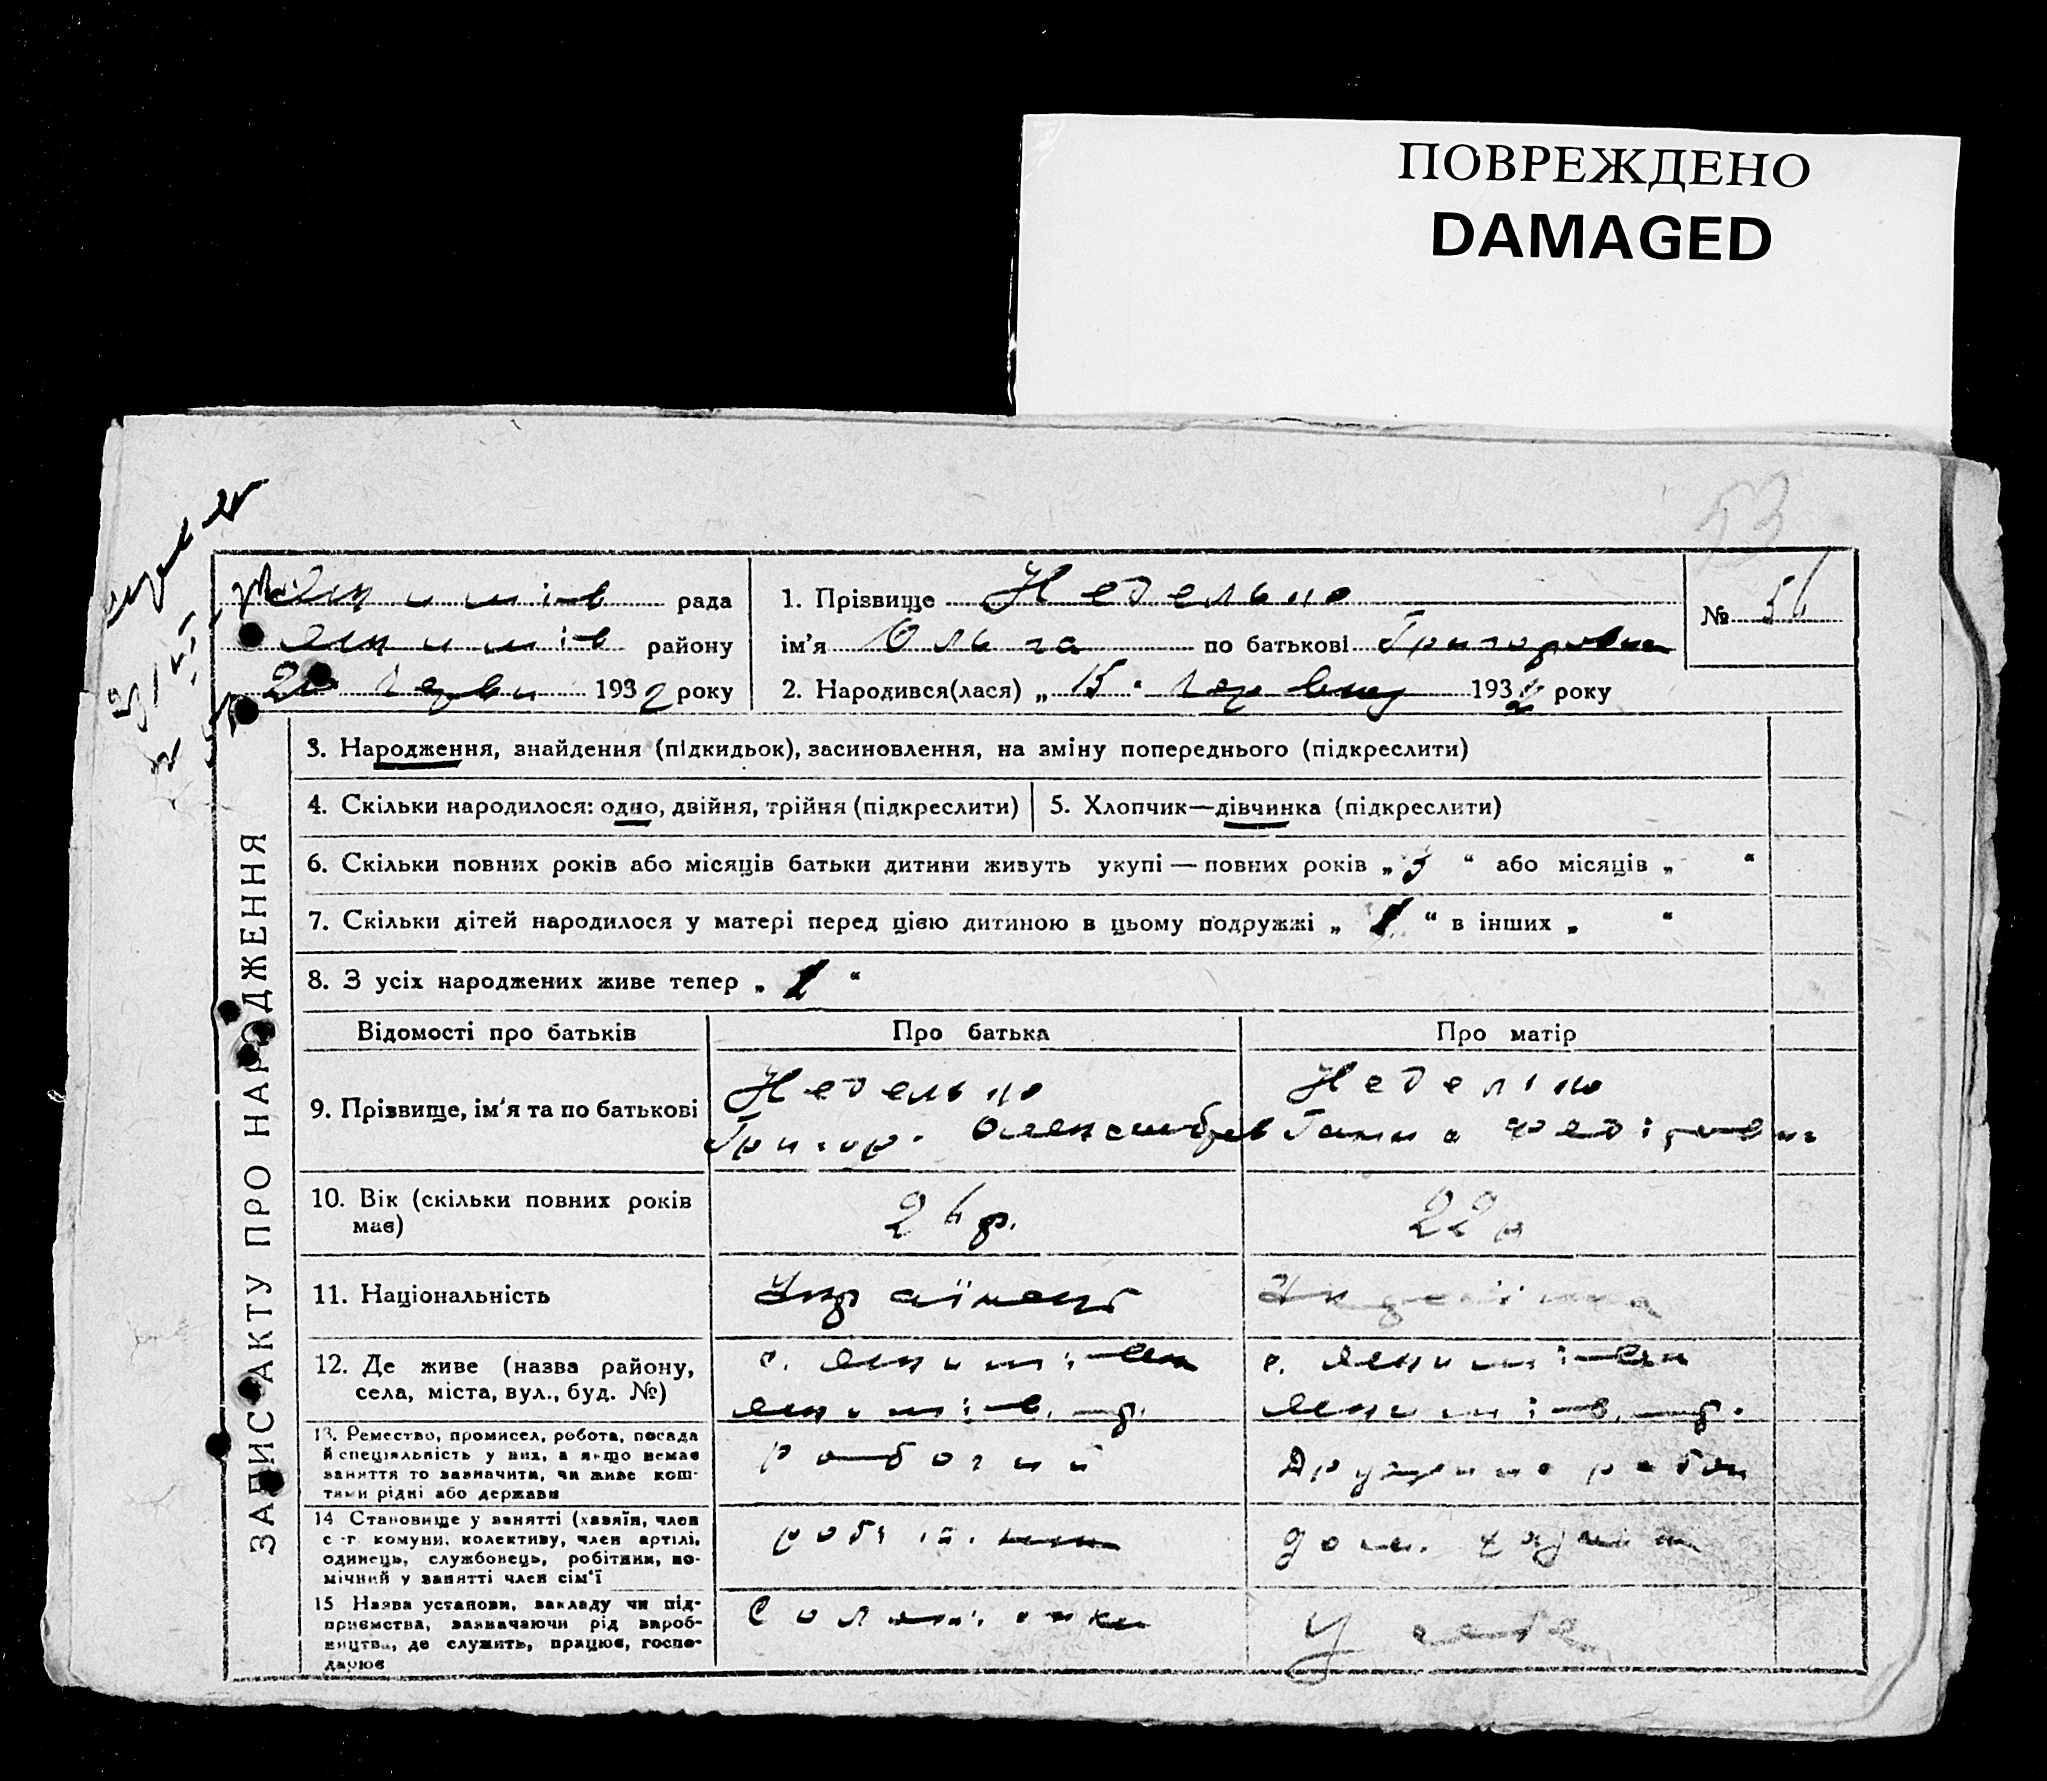 ПОВРЕЖДЕНО
DAMAGED
53
рада
району
20 червн 1932 року
1. Прізвище Недельно
ім'я Ольга по батькові Григоровна
2. Народився(лася) „ 15 " червня 1932 року
№ 51
ЗАПИС АКТУ ПРО НАРОДЖЕННЯ
3. Народження, знайдення (підкидьок), засиновлення, на зміну попереднього (підкреслити)
4. Скільки народилося: одно, двійня, трійня (підкреслити)
5. Хлопчик—дівчинка (підкреслити)
6. Скільки повних років або місяців батьки дитини живуть укупі — повних років „ 3 “ або місяців „ “
7. Скільки дітей народилося у матері перед цією дитиною в цьому подружжі „ 1 “ в інших „ “
8. З усіх народжених живе тепер „ “
Відомості про батьків
Про батька
Про матір
9. Прізвище, ім'я та по батькові
Недельно
Григор. Олександрев
Неделно
Ганна Федіровна
10. Вік (скільки повних років
має)
р.
22 р
11. Національність
Українець
Українка
12. Де живе (назва району,
села, міста, вул., буд. №)
с.
р.
с.
р.
13. Ремество, промисел, робота, посада
й спеціяльність у них, а якщо немає
заняття то зазначити, чи живе кош-
тами рідні або держави
робочий
14 Становище у занятті (хазяїн, член
с.-г. комуни, колективу, член артілі,
одинець, службовець, робітник, по-
мічний у занятті член сім'ї
робітник
дом.
15 Назва установи, закладу чи під-
приємства, зазначаючи рід вироб-
ництва, де служить, працює, госпо-
дарює
У себе